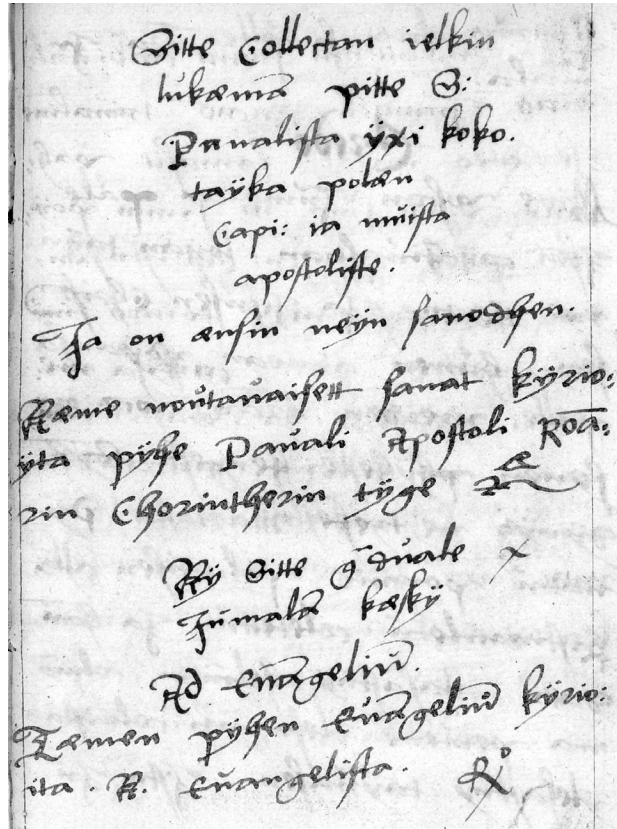 Sitte Collectan ielkin
lukæmā pitte S:
Pavalista ÿxi koko.
taÿka polæn
Capi: ia muista
apostoliste.
Ja on ænsin neyn sanodhen.
Næme noutavaisett sanat kÿrio:
ÿta pÿhe Pavali Apostoli Roā:
rin Chorintherin tÿge
Nÿ Sitte g̅duale x
Jumalā kæskÿ
Ad Evāgeliū.
Tæmen pÿhen Evāgeliū kÿrio:
ita. N. Evangelista.